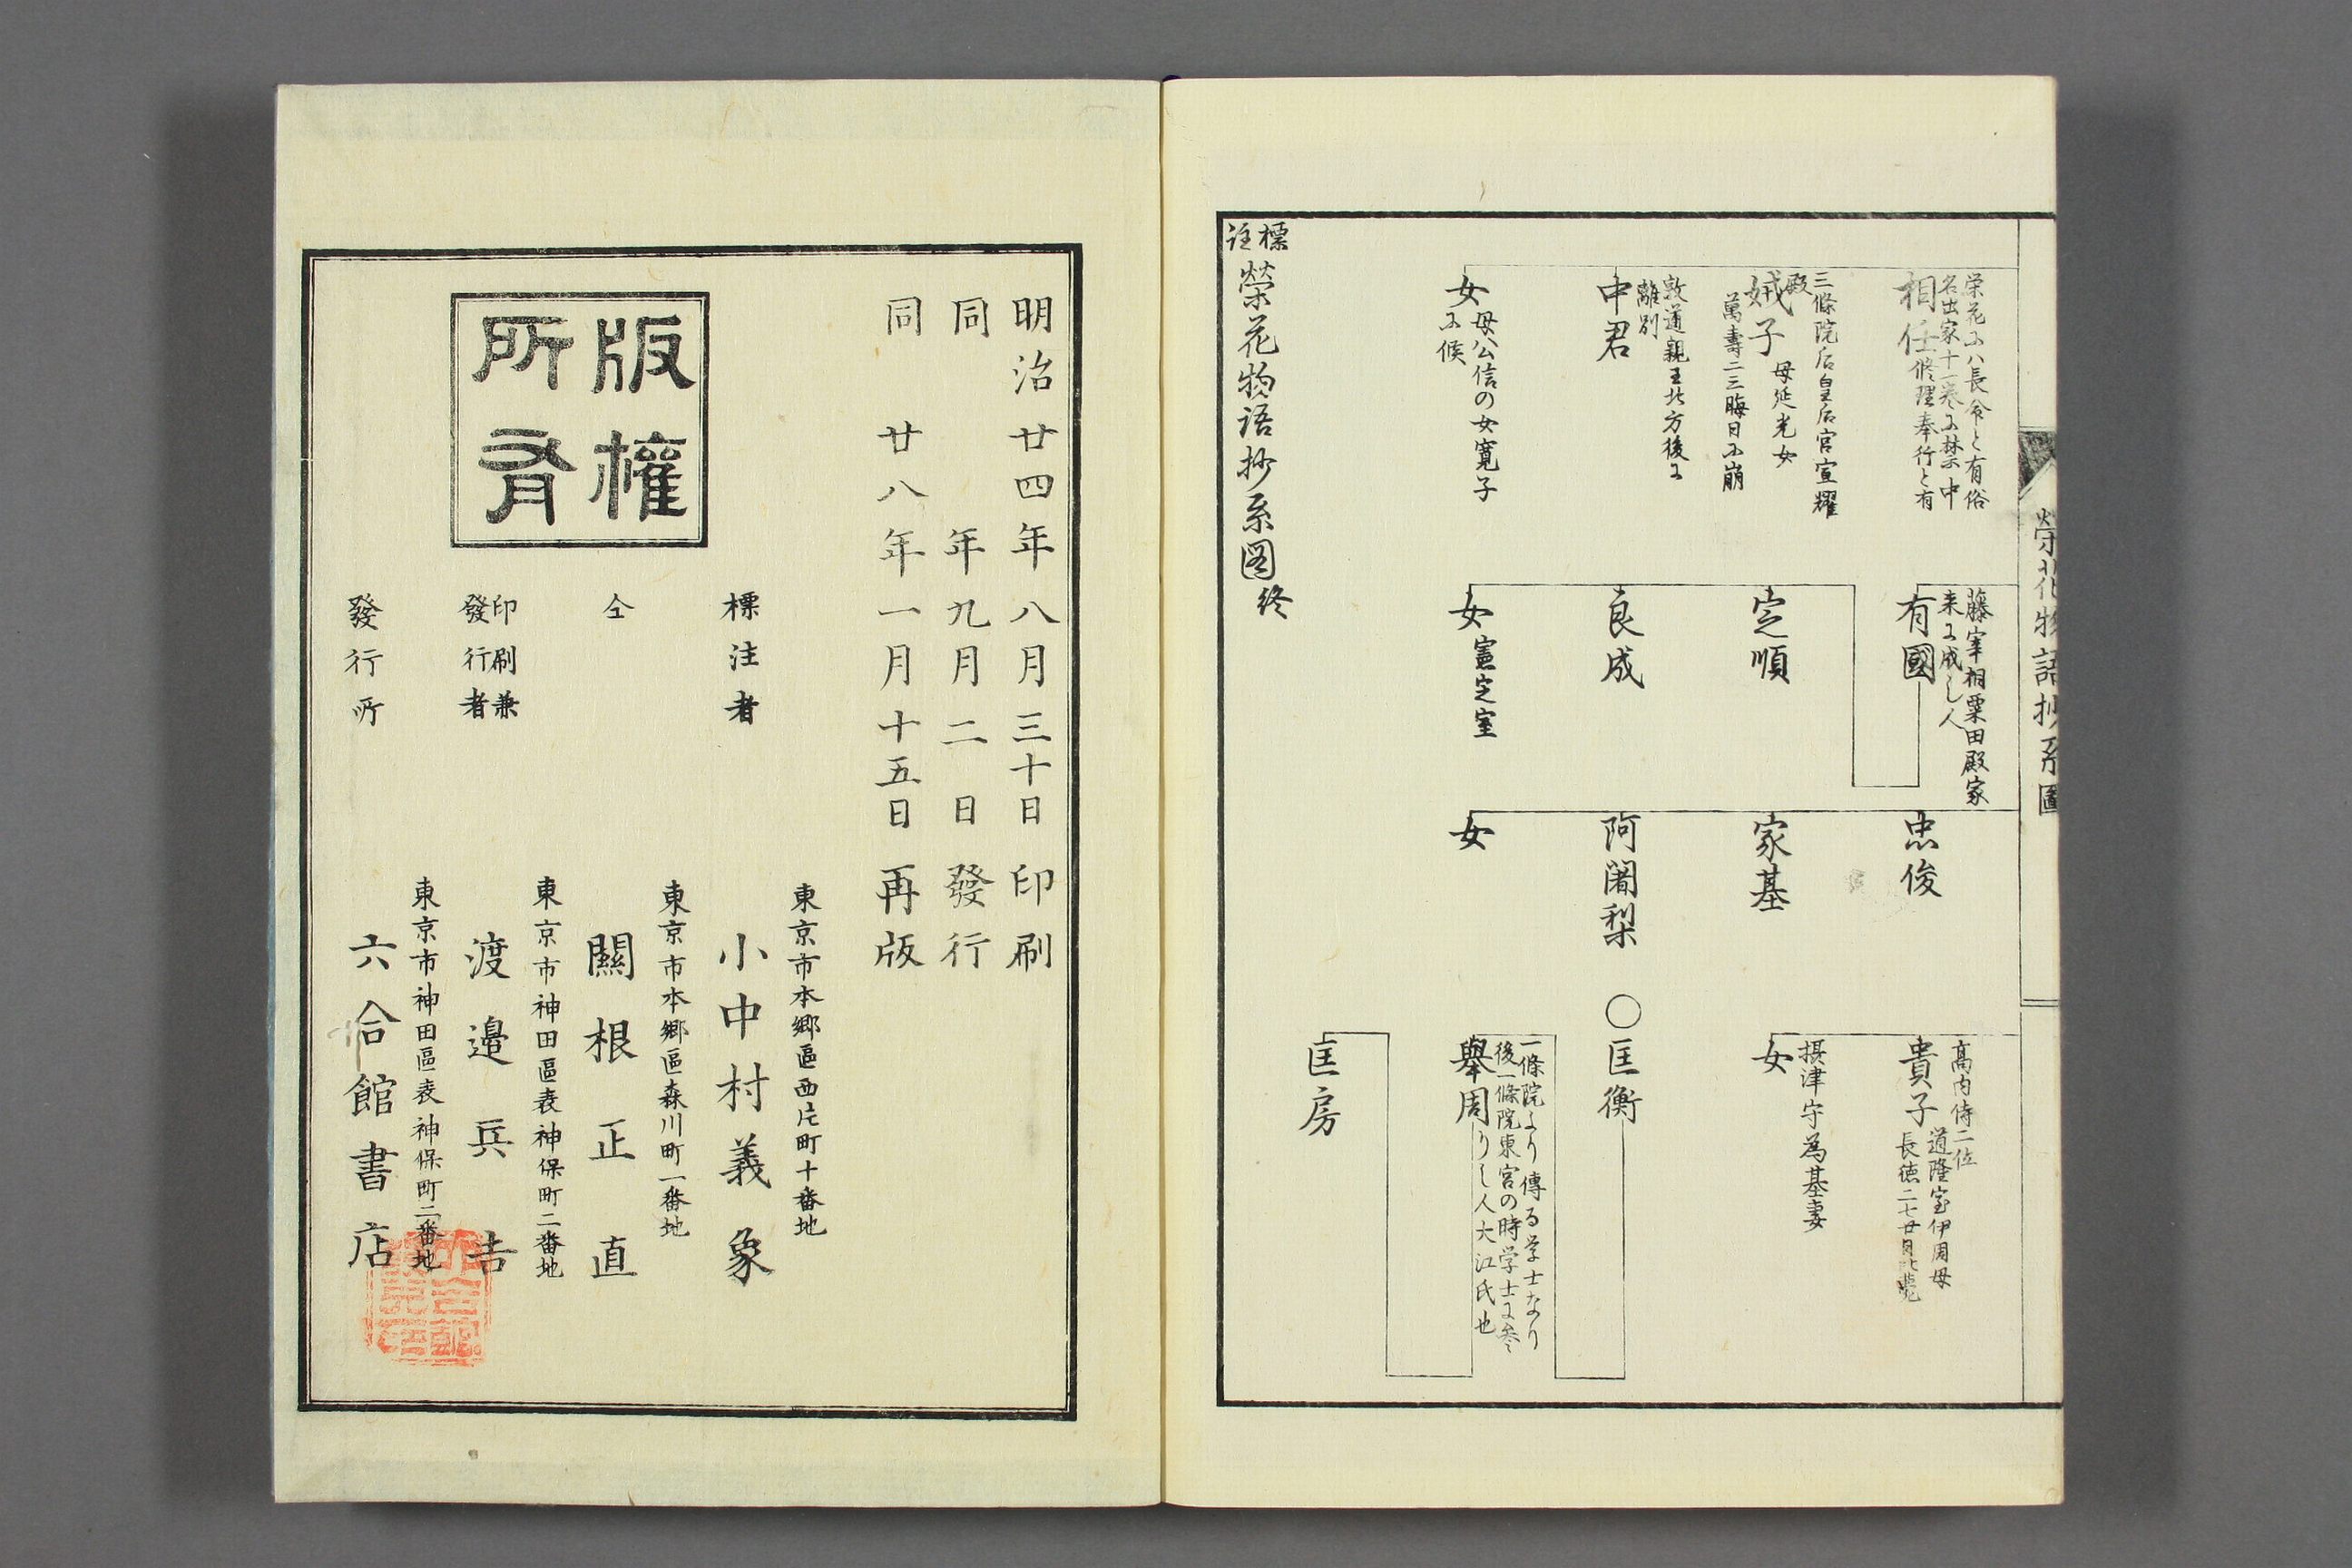 榮花物語抄系圖
栄花ニハ長命と有俗
名出家十一巻ニ禁中
相任
修理奉行と有
三條院后皇后宮宣耀
殿
娍子
母延光女
萬壽二三晦日ニ崩
敦道親王北方後ニ
離別
中君
女
母公信の女寛子
ニ候
藤宰相粟田殿家
来ニ成し人
有國
定順
良成
女
憲定室
忠俊
家基
阿闍梨
女
高内侍二位
貴子
道隆室伊周母
長徳二七廿日比薨
摂津守為基妻
女
〇匡衡
一條院より傳る学士なり
後一條院東宮の時学士ニ参
擧周
りし人大江氏也
匡房
標註
榮花物語抄系図
終
明治廿四年八月三十日印刷
同年九月二日發行
同廿八年一月十五日再版
版權所有
東京市本郷區西片町十番地
標注者 小中村義象
東京市本郷區森川町一番地
仝 關根正直
東京市神田區表神保町二番地
印刷兼發行者 渡邉兵吉
東京市神田區表神保町二番地
發行所 六合館書店